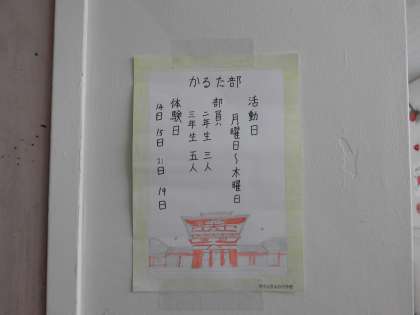 かるた部
活動日
月曜日～木曜日
部員
二年生 三人
三年生 五人
体験日
14日 15日 21日 19日